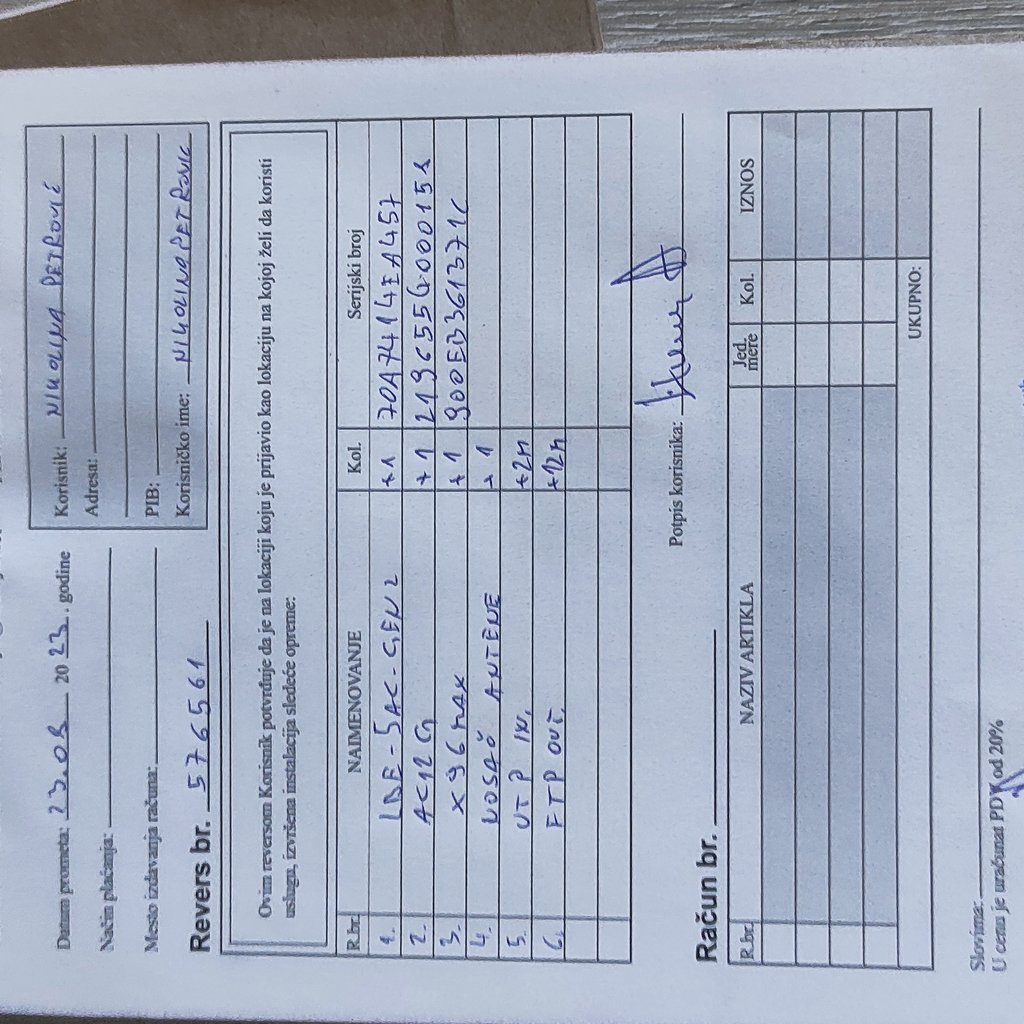 Datum prometa: 23.08 2023. godine
Način plaćanja:
Mesto izdavanja računa:
Revers br. 576561
Korisnik: NIKOLINA PETROVIĆ
Adresa:
PIB:
Korisničko ime: NIKOLINAPETROVIC
Ovim reversom Korisnik potvrđuje da je na lokaciji koju je prijavio kao lokaciju na kojoj želi da koristi
uslugu, izvršena instalacija sledeće opreme:
R.br. NAIMENOVANJE Kol. Serijski broj
1. LDF-5AC-GEN2 +1 70A7414EA457
2. AC12G +1 219655G000151
3. X96MAX +1 900EB361371C
4. NOSAČ ANTENE +1
5. UTP IN. +2m
6. FTP OUT. +12m
Potpis korisnika:
Račun br.
R.br. NAZIV ARTIKLA Jed. mere Kol. IZNOS
UKUPNO:
Slovima:
U cenu je uračunat PDV od 20%